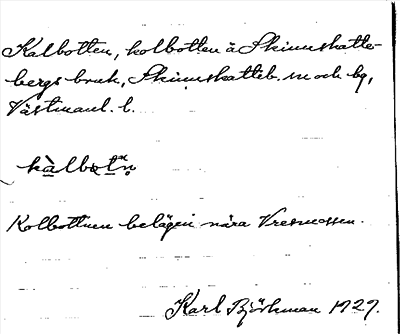 Kalbotten, kolbotten å Skinnskatte-
bergs bruk, Skinnskatteb. sn och bg,
Västmanl. l.
kàlbotn̥
Kolbottnen belägen nära Vresmossen.
Karl Björkman 1929.